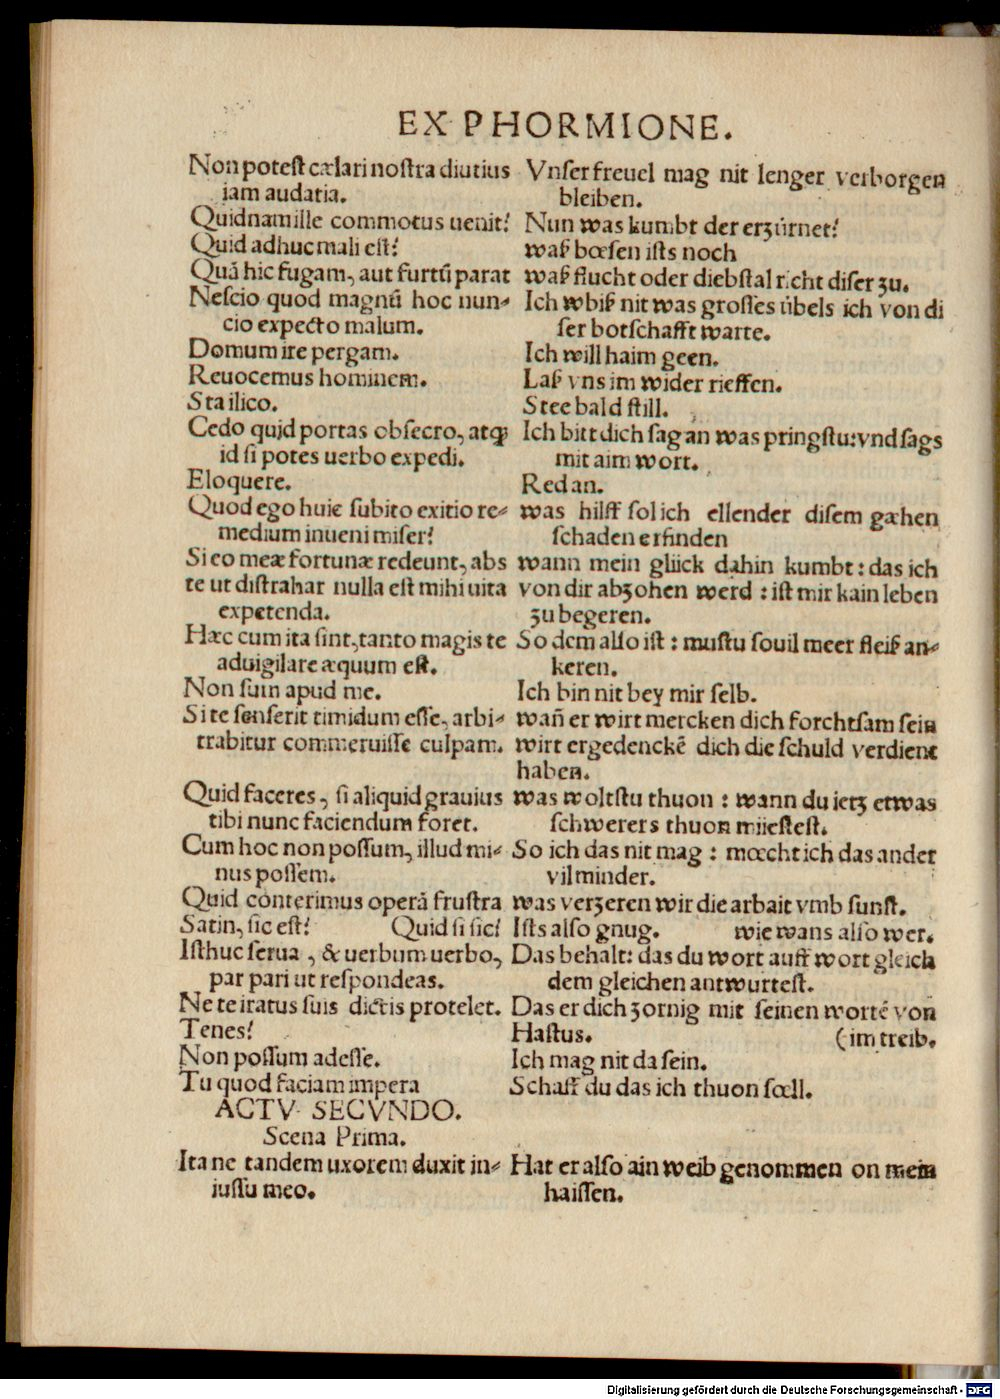 EX PHORMIONE.
Non potest cælari nostra diutius
iam audatia.
Quidnam ille commotus uenit?
Quid adhuc mali est?
Quã hic fugam, aut furtũ parat
Nescio quod magnũ hoc nun-
cio expecto malum.
Domum ire pergam.
Reuocemus hominem.
Sta ilico.
Cedo quid portas obsecro, atqꝫ
id si potes uerbo expedi.
Eloquere.
Quod ego huic subito exitio re-
medium inueni miser?
Si eo meæ fortunæ redeunt, abs
te ut distrahar nulla est mihi uita
expetenda.
Hæc cum ita sint, tanto magis te
aduigilare æquum est.
Non sum apud me.
Si te senserit timidum esse, arbi-
trabitur commeruisse culpam.
Quid faceres, si aliquid grauius
tibi nunc faciendum foret.
Cum hoc non possum, illud mi-
nus possem.
Quid conterimus operã frustra
Satin, sic est? Quid si sic?
Isthuc serua, & uerbum uerbo,
par pari ut respondeas.
Ne te iratus suis dictis protelet.
Tenes?
Non possum adesse.
Tu quod faciam impera
ACTV SECVNDO.
Scena Prima.
Itane tandem uxorem duxit in-
iussu meo.
Vnser freuel mag nit lenger verborgen
bleiben.
Nun was kumbt der erzürnet?
waß bœsen ists noch
waß flucht oder diebstal richt diser zu.
Ich wbiß nit was grosses übels ich von di
ser botschafft warte.
Ich will haim geen.
Laß vns im wider rieffen.
Stee bald still.
Ich bitt dich sag an was pringstu: vnd sags
mit aim wort.
Red an.
was hilff sol ich ellender disem gæhen
schaden erfinden
wann mein glück dahin kumbt: das ich
von dir abzohen werd: ist mir kain leben
zu begeren.
So dem also ist: mustu souil meer fleiß an-
keren.
Ich bin nit bey mir selb.
wañ er wirt mercken dich forchtsam sein
wirt er gedenckẽ dich die schuld verdient
haben.
was woltstu thuon: wann du ietz etwas
schwerers thuon müestest.
So ich das nit mag: mœcht ich das ander
vil minder.
was verzeren wir die arbait vmb sunst.
Ists also gnug. wie wans also wer.
Das behalt: das du wort auff wort gleich
dem gleichen antwurtest.
Das er dich zornig mit seinen wortẽ von
Hastus. (im treib.
Ich mag nit da sein.
Schaff du das ich thuon sœll.
Hat er also ain weib genommen on mein
haissen.
Digitalisierung gefördert durch die Deutsche Forschungsgemeinschaft - DFG